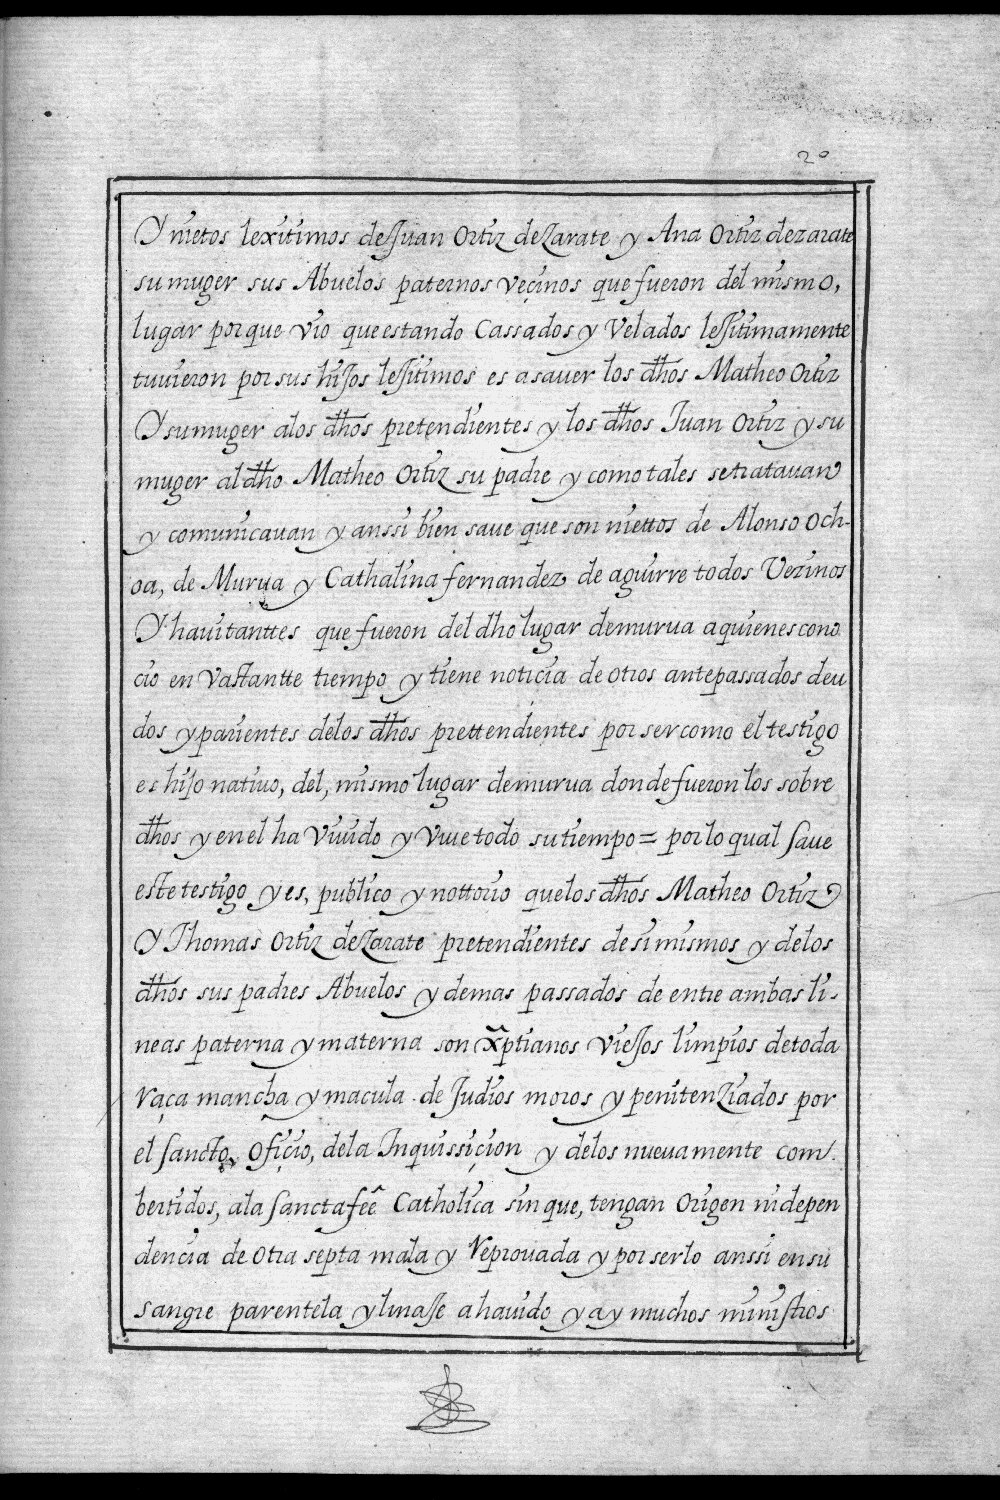 20
Y nietos lexitimos de Juan Ortiz de Zarate y Ana Ortiz dezarate
su muger sus Abuelos paternos veçinos que fueron del mismo,
lugar porque vio que estando Cassados y Velados lejitimamente
tuuieron por sus hijos lejitimos es a sauer los dhos Matheo Ortiz
Y su muger alos dhos pretendientes y los dhos Juan Ortiz y su
muger al dho Matheo Ortiz su padre y como tales se tratauan
y comunicauan y anssi bien saue que son niettos de Alonso Och-
oa, de Murua y Cathalina fernandez de aguirre todos Vezinos
Y hauitanttes que fueron del dho lugar de murua a quienes cono
cio en Vastantte tiempo y tiene noticia de otros antepassados deu
dos y parientes delos dhos prettendientes por ser como el testigo
es hijo natiuo, del, mismo lugar de murua donde fueron los sobre
dhos y en el ha Viuido y Viue todo su tiempo = por lo qual saue
este testigo y es, publico y nottorio que los dhos Matheo Ortiz
Y Thomas Ortiz de Zarate pretendientes de si mismos y de los
dhos sus padres Abuelos y demas passados de entre ambas li-
neas paterna y materna son xptianos Viejos limpios de toda
raça mancha y macula de Judios moros y penitenziados por
el sancto, Ofiçio, de la Inquissiçion y delos nueuamente com
bertidos, ala sancta feê Catholica sin que, tengan Origen ni depen
dencia de otra septa mala y Reprouada y por serlo anssi en su
sangre parentela y linaje a hauido y ay muchos ministros